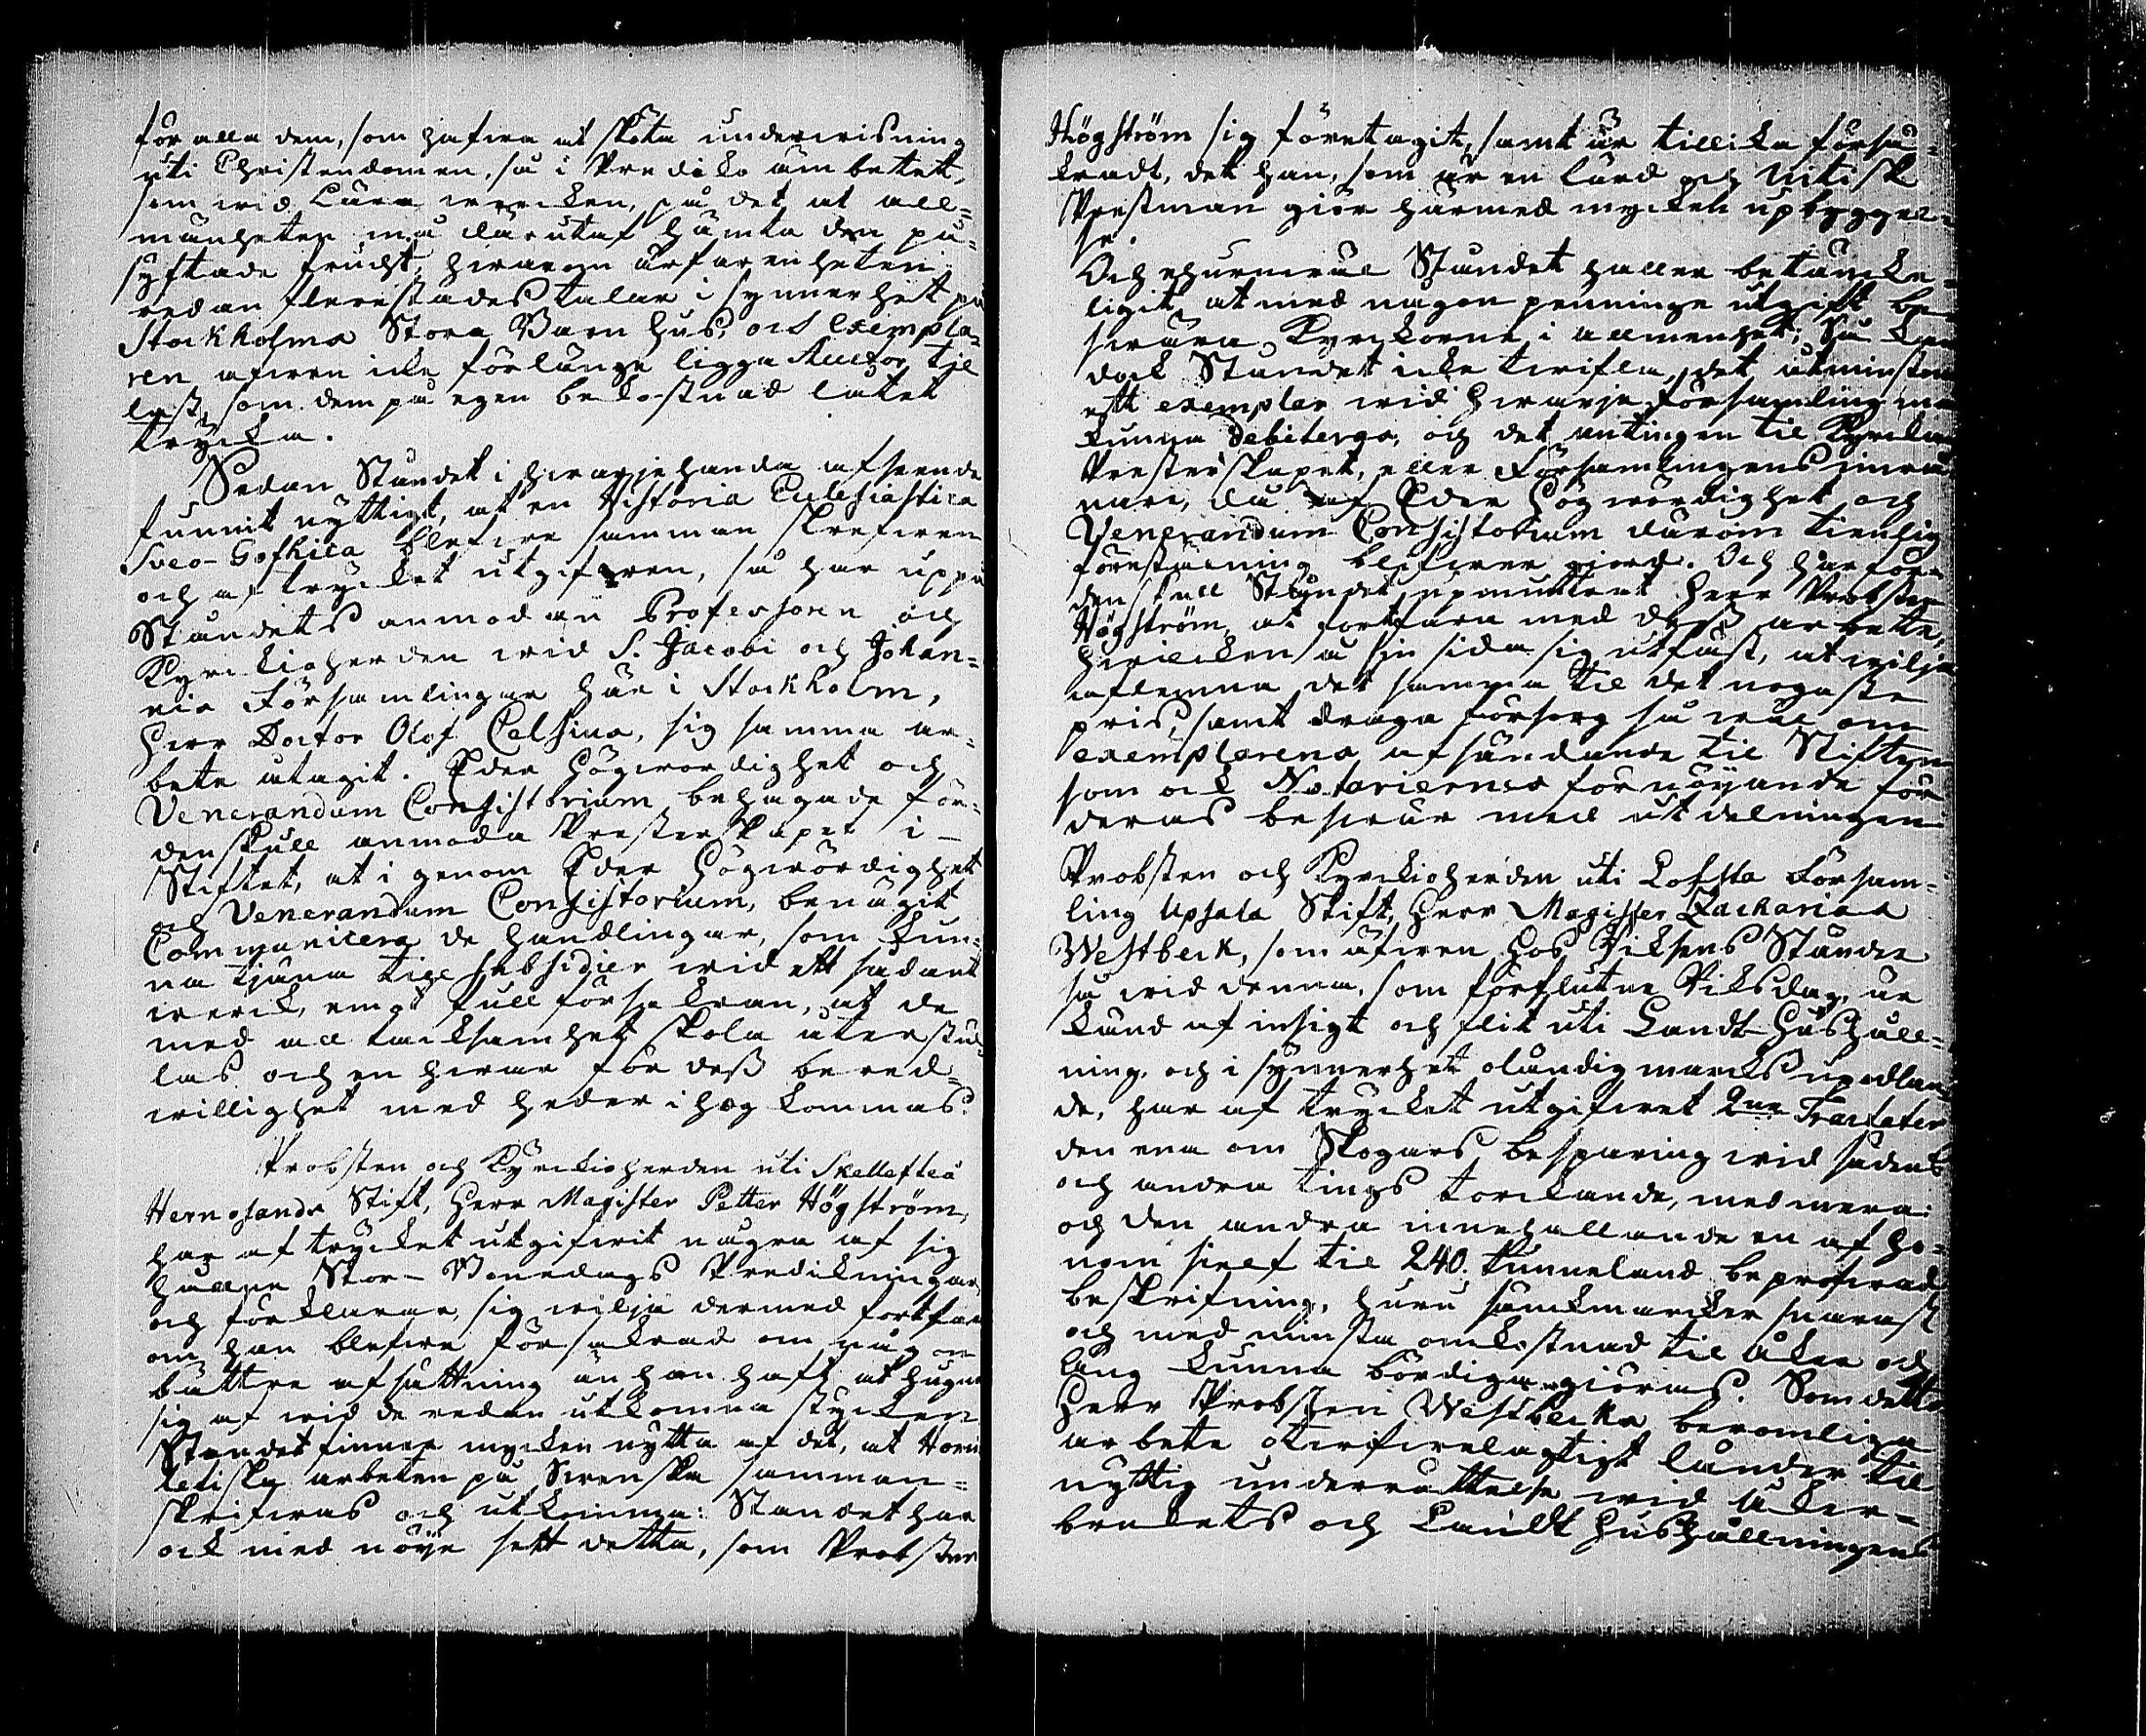 för alla dem, som hafwa at sköta underwisning
uti Christendomen, så i Prediko ämbetet,
som wid Läro wercken, på det at all-
mänheten må därutaf hämta den på-
syftade frucht, hwarom ärfarenheten
redan flerestädes talar i synnerhet på
Stockholms Stora Barnhus, och exempla-
ren äfwen icke förlänge ligga Auctor til
last, som dem på egen bekostnad låtet
trycka.
Sedan Ståndet i hwarjehanda afseende
funnit nyttigt, at en Historia Ecclesiastica
Sveo-Gothica blefwe samman skrefwen
och af trycket utgifwen, så har uppå
Ståndets anmodan Professoren och
Kyrckioherden wid S. Jacobi och Johan-
nis Församlingar här i Stockholm,
Herr Doctor Olof Celsius, sig samma ar-
bete åtagit. Eder Högwördighet och
Venerandum Consistorium behagade för-
denskull anmoda Presterskapet i
Stiftet, at igenom Eder Högwördighet
och Venerandum Consistorium, benägit
Communicera de handlingar, som kun-
na tjäna till subsidier wid ett sådant
werck, emot full försäkran, at de
med all tacksamhet skola återstäl-
las och en hwar för deß bered-
willighet med heder ihog kommas.
Probsten och Kyrckioherden uti Skellefteå
Hernosands Stift, Herr Magister Petter Högström,
har af trycket utgifwit några af sig
hållne Stor-Bönedags Predikningar,
och förklarar sig wilja dermed fortfara
om han blefwe försäkrad om någon
bättre afsättning än han haft at hugna
sig af wid de redan utkomna stycken
Ståndet finner mycken nytta af det, at Homi-
letiska arbeten på Swenska samman-
skrifwas och utkomma: Ståndet har
ock med nöye sett detta, som Probsten
Högström sig företagit, samt är tillika försä-
kradt, det han, som är en lärd och nitisk
Prestman giör härmed mycken upbyggel-
se.
Och ehuruwäl Ståndet håller betäncke-
ligit, at med någon penninge utgift be-
swära Kyrckorne i allmenhet; Så kan
dock Ståndet icke twifla, det åtminstone
ett exemplar wid hwarje församling må
kunna debiteras, och det antingen til Kyrckan
Presterskapet, eller Församlingens inwå-
nare, då af Eder Högwördighet och
Venerandum Consistorium därom tienlig
föreställning blefwer giord. Och har för-
denskull Ståndet upmuntrat Herr Probsten
Högström, at fortfara med deß arbete,
hwilcken å sin sida sig utfäst, at wilja
aflemna det samma til det nogaste
pris, samt draga försorg så wäl om
exemplarens afsändande til Stiften
som ock Notariernes förnöyande för
deras beswär med utdelningen.
Probsten och Kyrckioherden uti Lofsta Försam-
ling Upsala Stift, Herr Magister Zacharias
Westbeck, som äfwen hos Riksens Ständer
så wid denna, som förflutne Riksdag, är
känd af insigt och flit uti Landt-Hushåll-
ning, och i synnerhet oländig marcks upodlan-
de, har af trycket utgifwet 2ne Tractater
den ena om Skogars besparing wid sädens
och andra tings torckande, med mera:
och den andra innehållande en af ho-
nom sielf til 240. tunneland beprofwad
beskrifning, huru sänckmarcker snarast
och med minsta omkostnad til Åker och
Äng kunna bördiga giöras. Som detta
Herr Probsten Westbecks berömliga
arbete otwifwelagtigt länder til
nyttig underrättelse wid åker-
brukets och Landt Hushållningens